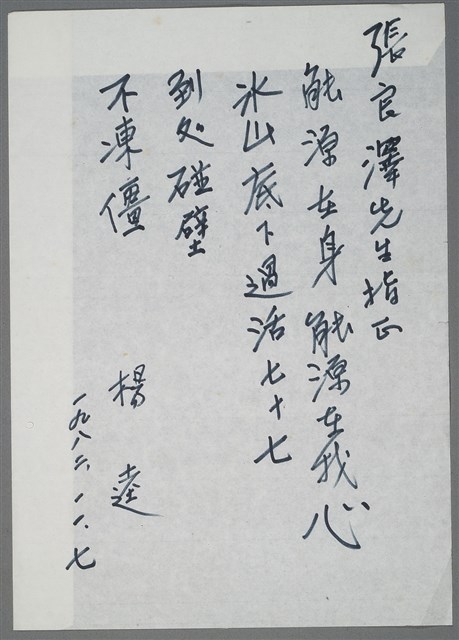 張官澤先生指正
能源在身能源在我心
氷山底下過活七十七
到処碰壁
不凍僵
楊逵
一九八二、一一、七